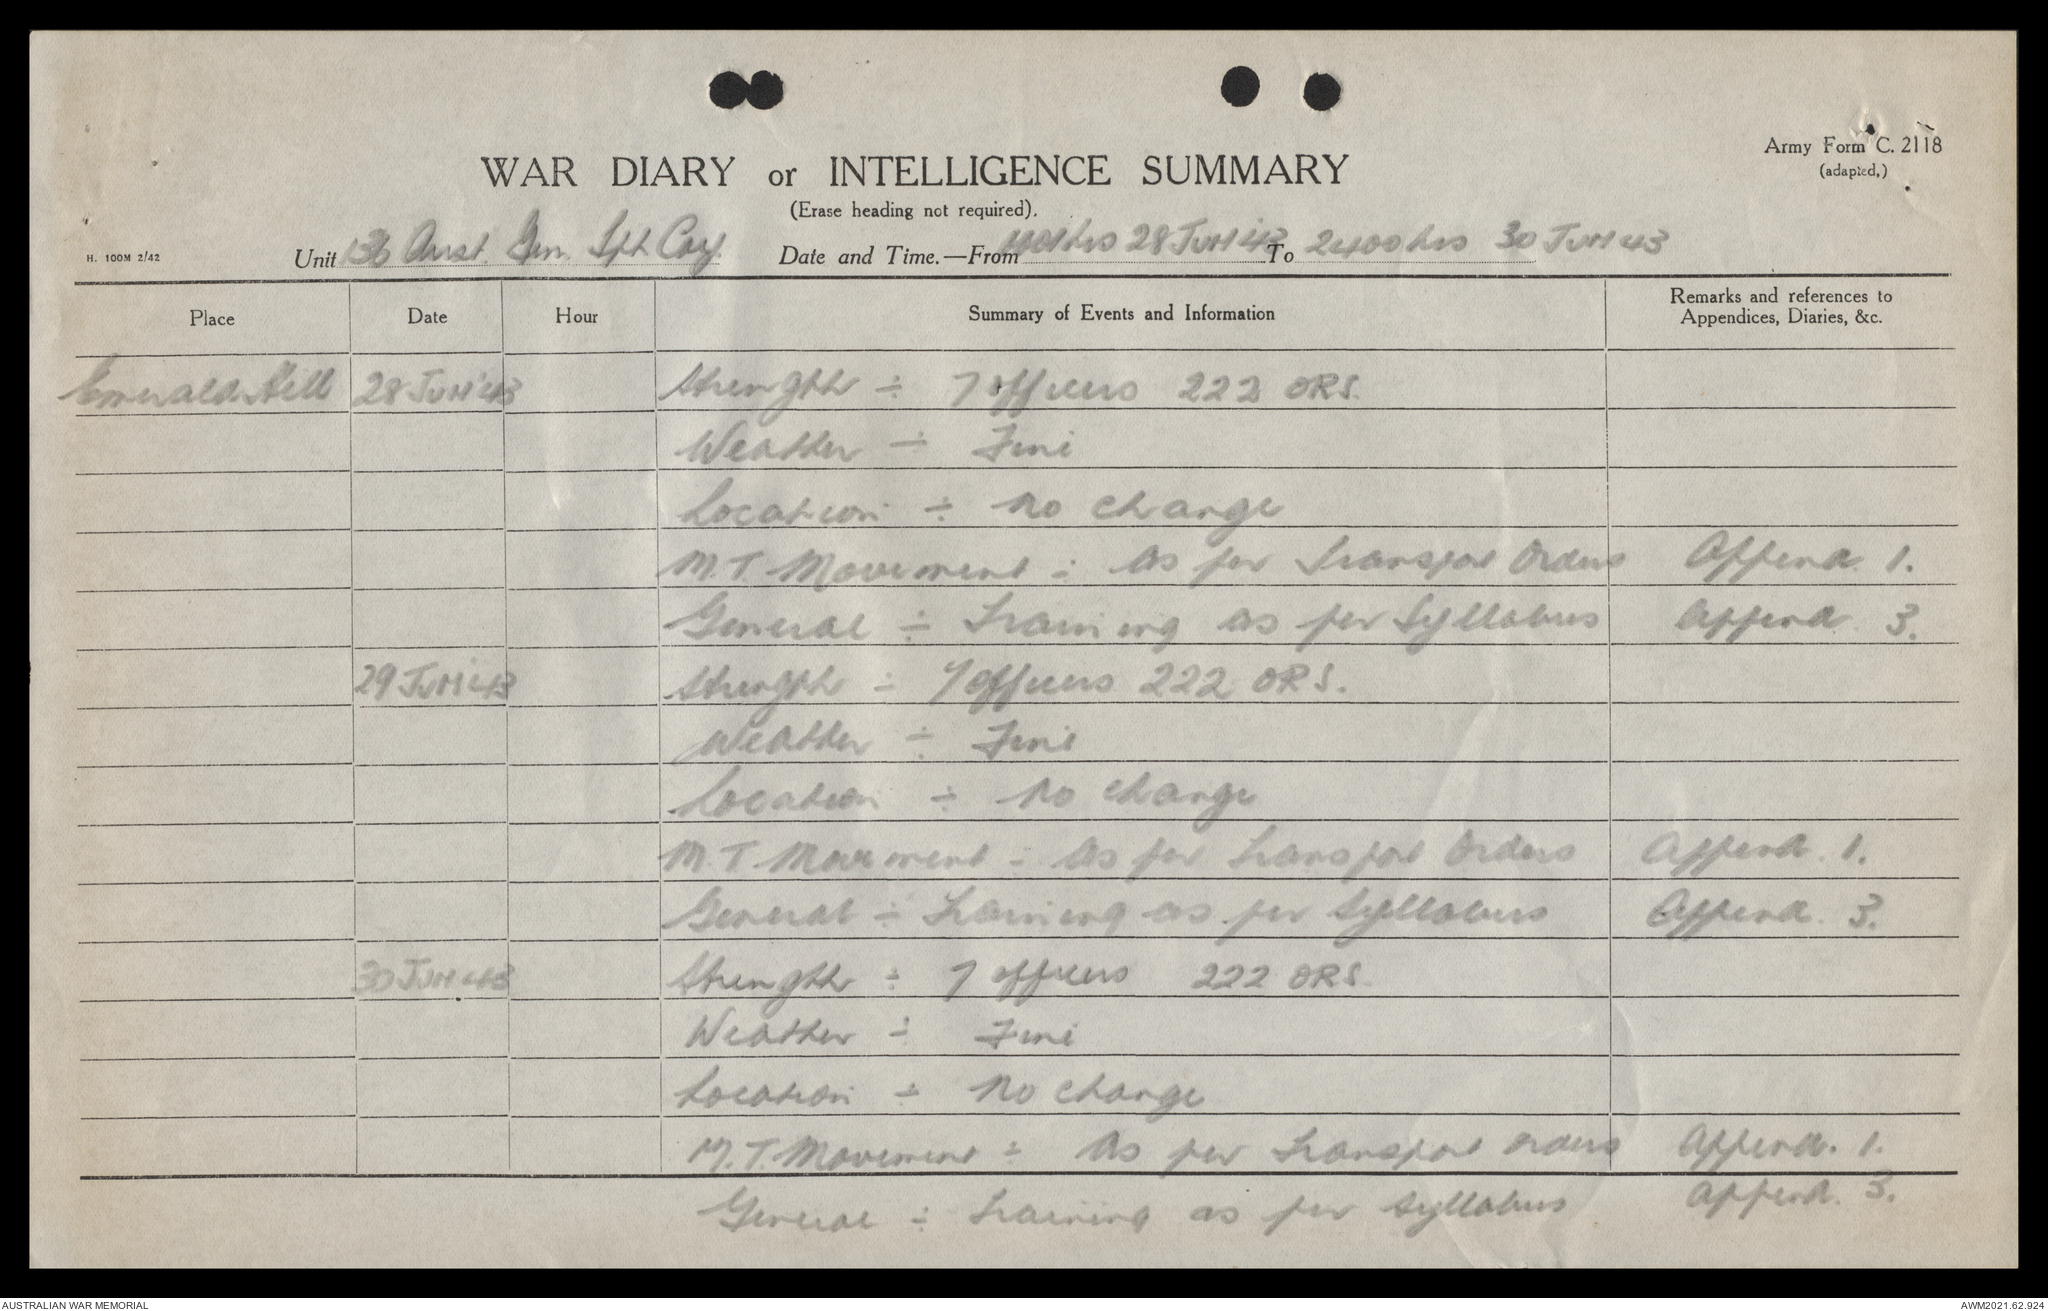 Army Form C. 2118
(adapted.)
WAR DIARY or INTELLIGENCE SUMMARY
(Erase heading not required).
H. 100M 2/42
Unit 136 Aust. Gen. Tpt Coy. Date and Time.—From 0001hrs 28 Jun 43 To 2400hrs 30 Jun 43
Place Date Hour Summary of Events and Information Remarks and references to Appendices, Diaries, &c.
Emerald Hill 28 Jun '43 Strength ÷ 7 officers 222 ORS.
Weather ÷ Fine
Location ÷ No change
M.T. Movement ÷ As per Transport Orders Append. 1.
General ÷ Training as per Syllabus Append. 3.
29 Jun 43 Strength ÷ 7 officers 222 ORS.
Weather ÷ Fine
Location ÷ No change
M.T. Movement - As per Transport Orders Append. 1.
General ÷ Training as per Syllabus Append. 3.
30 Jun 43 Strength ÷ 7 officers 222 ORS.
Weather ÷ Fine
Location ÷ No change
M.T. Movement ÷ As per Transport Orders Append. 1.
General ÷ Training as per Syllabus Append. 3.
AUSTRALIAN WAR MEMORIAL AWM2021.62.924